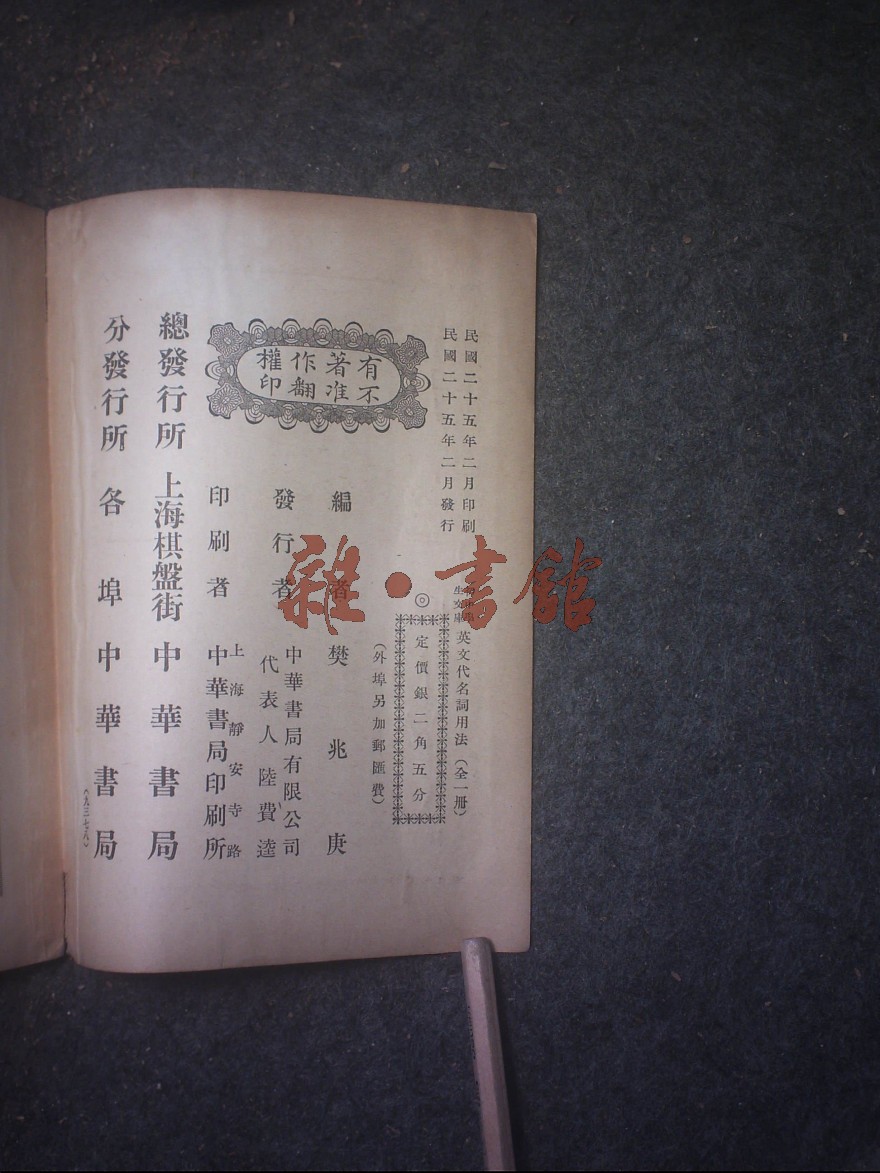 民國二十五年二月印刷
民國二十五年二月發行
生文庫 英文代名詞用法(全一冊)
◎定價銀二角五分
(外埠另加郵匯費)
有著作權
不准翻印
編者 樊兆庚
發行者 中華書局有限公司
代表人 陸費逵
印刷者 上海靜安寺路
中華書局印刷所
總發行所 上海棋盤街 中華書局
分發行所 各埠中華書局
(九三七八)
雜·書館